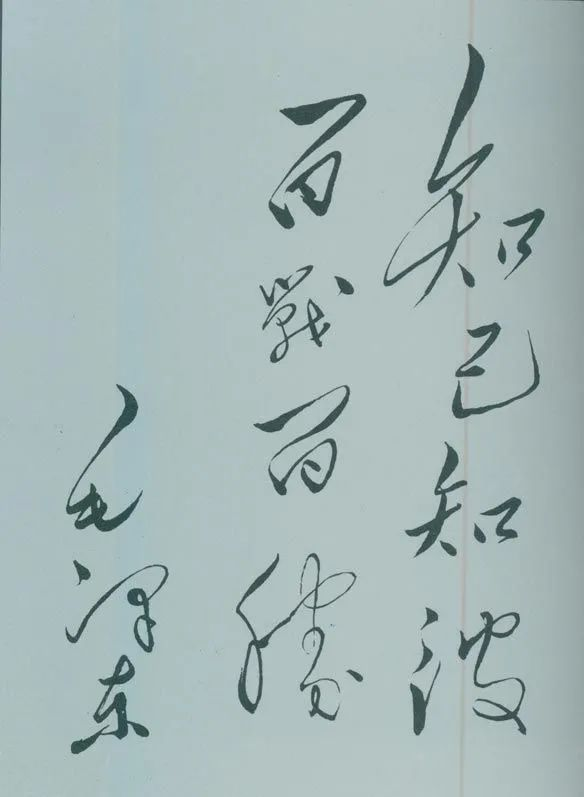 知己知彼
百戰百勝
毛泽东